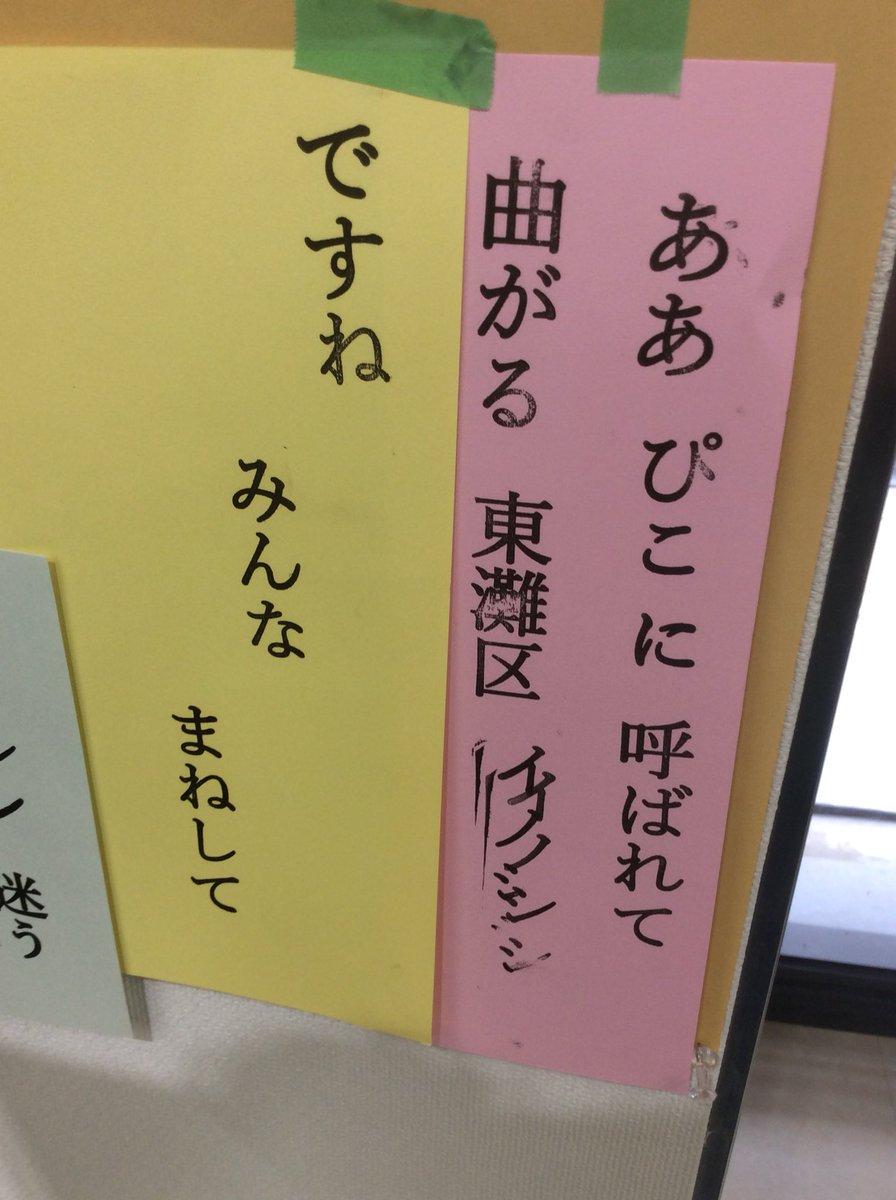 ああ ぴこに 呼ばれて
曲がる 東灘区 イノシシ
ですね
みんな
まねして
迷う